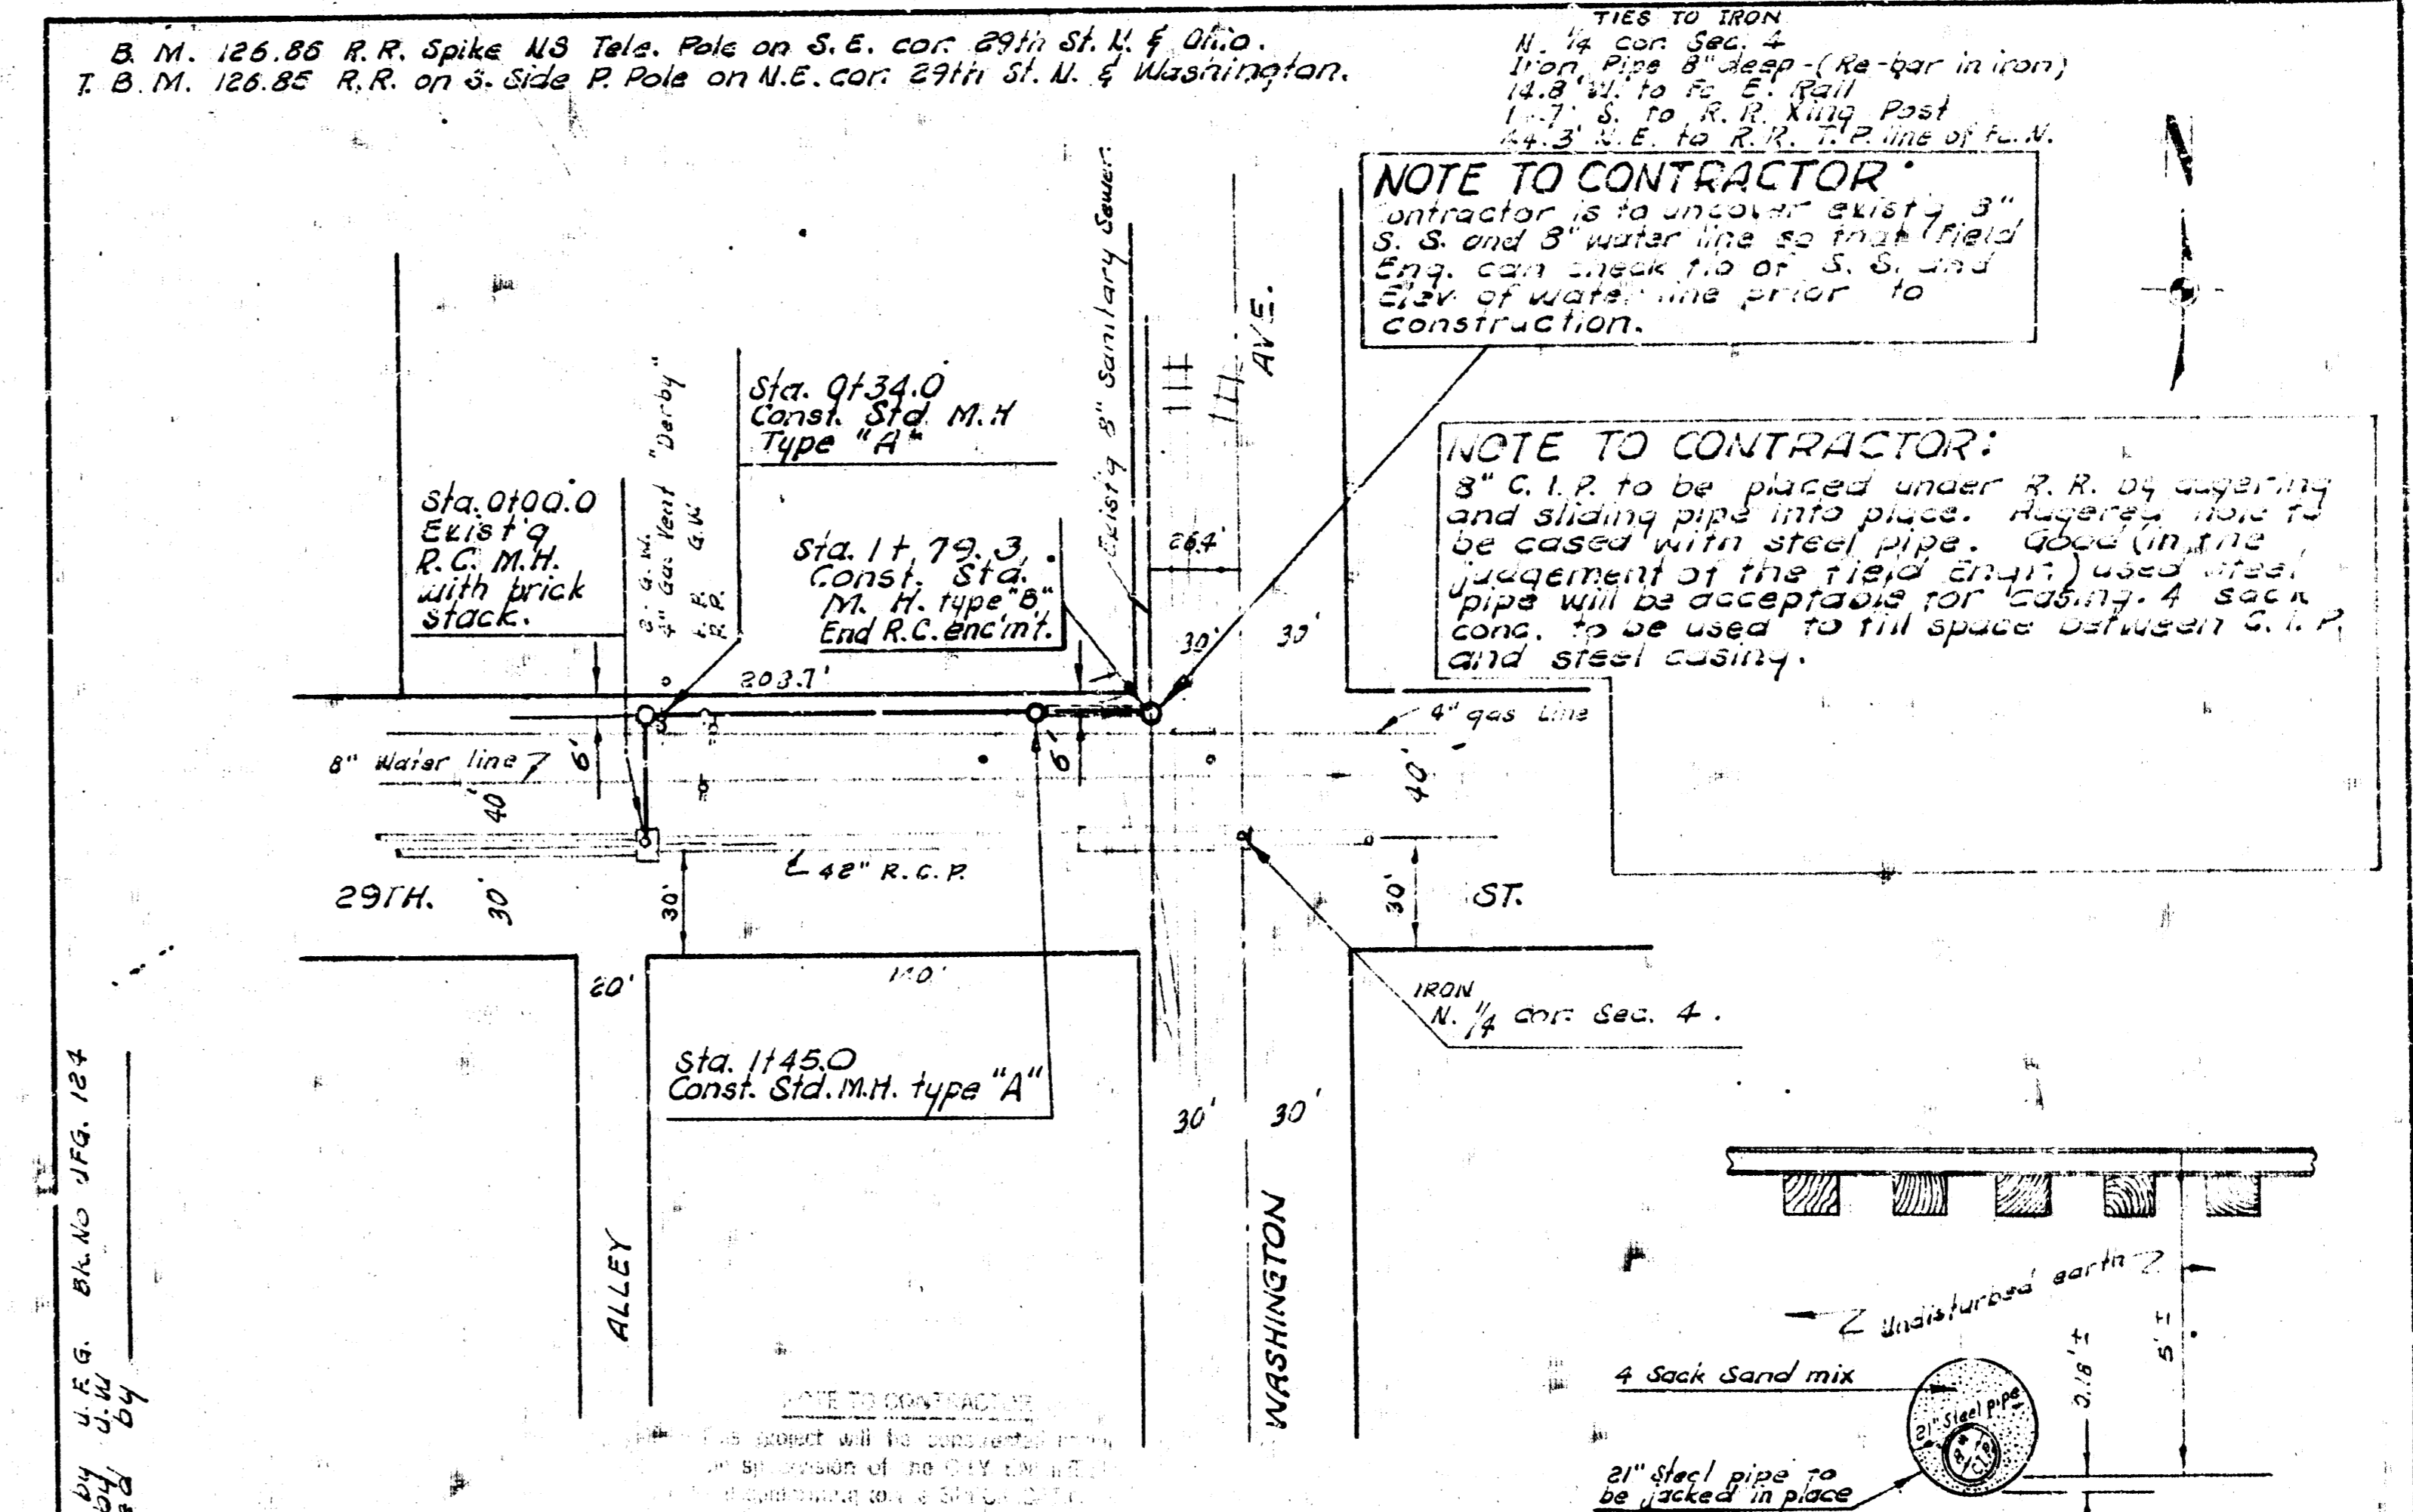 B. M. 126.86 R.R. Spike NS Tele. Pole on S.E. cor. 29th St. N. & Ohio.
T. B. M. 126.85 R.R. on S. Side P. Pole on N.E. cor. 29th St. N. & Washington.
TIES TO IRON
N. 1/4 cor. Sec. 4
Iron Pipe 8" deep - (Re-bar in iron)
14.8' W. to Fc. E. Rail
S. to R.R. Xing Post
44.3' N.E. to R.R. T.P. line of Fc. N.
N
NOTE TO CONTRACTOR:
Contractor is to uncover exist'g 8"
S. S. and 8" water line so that field
Eng. can check f/o of S. S. and
Elev. of water line prior to
construction.
NOTE TO CONTRACTOR:
8" C. I. P. to be placed under R. R. by augering
and sliding pipe into place. Augered hole to
be cased with steel pipe. Good (in the
judgement of the field Eng'r.) used steel
pipe will be acceptable for casing. 4 sack
conc. to be used to fill space between C. I. P.
and steel casing.
Exist'g 8" Sanitary Sewer
AVE.
Sta. 0+34.0
Const. Std. M.H
Type "A"
Sta. 0+00.0
Exist'g
R.C. M.H.
with brick
stack.
G.W.
4" Gas Vent "Derby"
P.P. G.W.
P.P.
Sta. 1+79.3
Const. Std.
M. H. type "B"
End R.C. enc'm't.
26.4'
30'
30'
203.7'
4" gas Line
8" Water line
6'
6'
40'
40'
℄ 42" R.C.P.
29TH.
30'
30'
30'
ST.
20'
IRON
N. 1/4 cor. Sec. 4.
Sta. 1+45.0
Const. Std. M.H. type "A"
30'
30'
ALLEY
WASHINGTON
Bk. No JFG. 124
by J.F.G.
by J.W
by
Undisturbed earth
5' ±
4 Sack Sand mix
21" Steel pipe
8" C.I.P.
21" Steel pipe to
be jacked in place
NOTE TO CONTRACTOR
project will be constructed
of the CITY